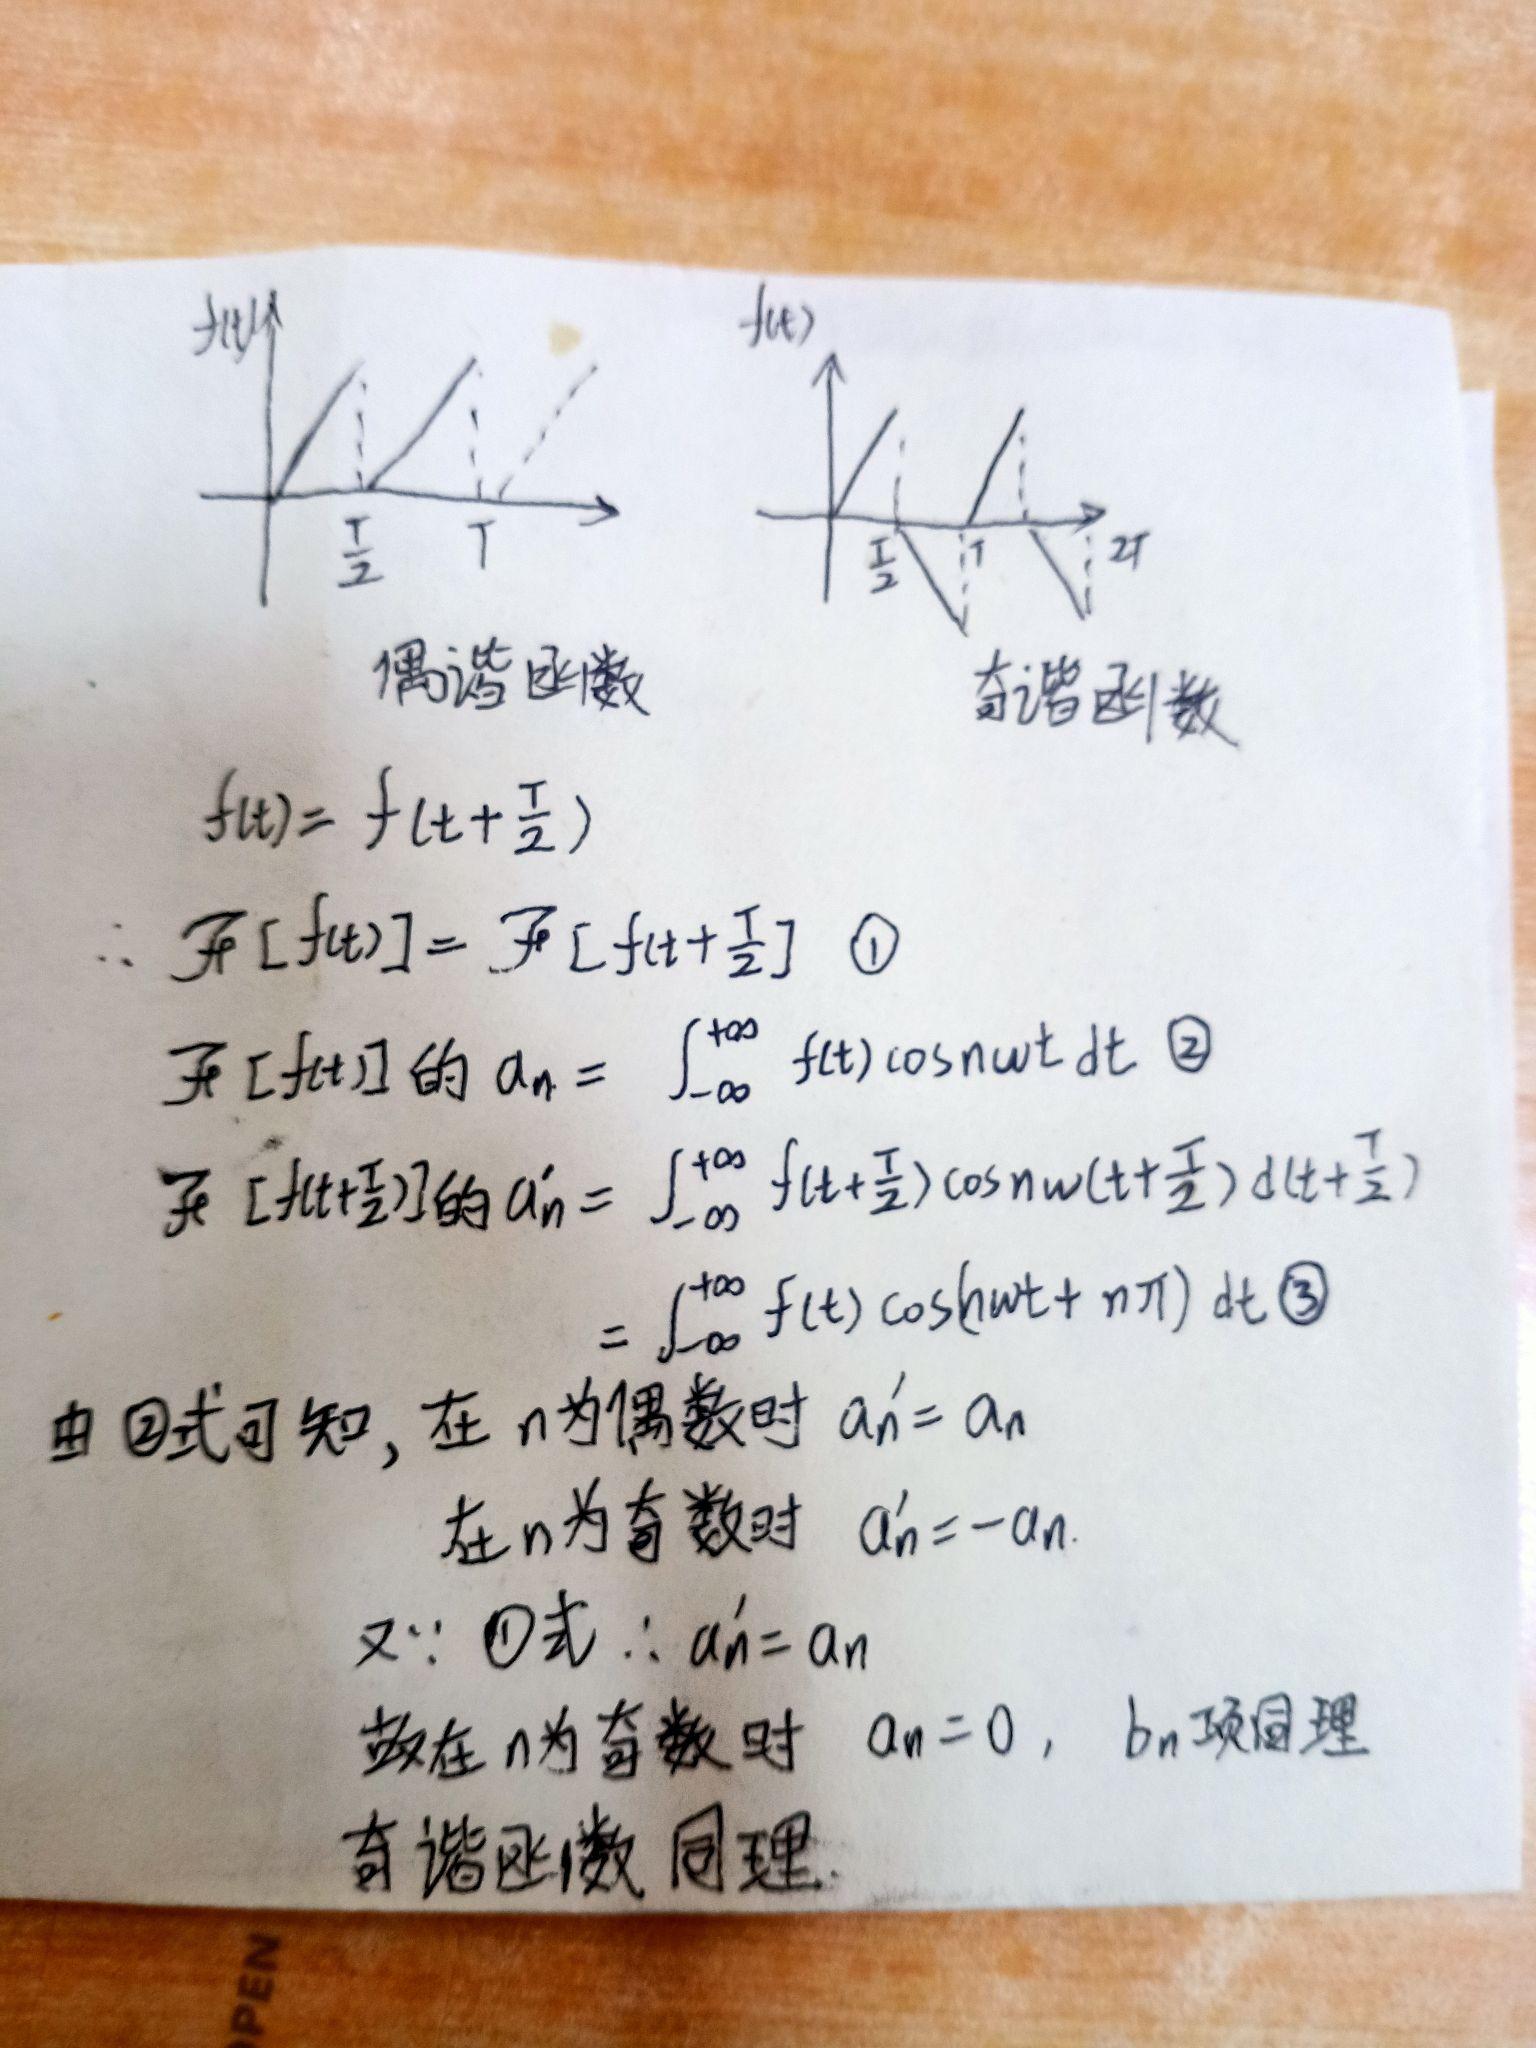 f(t)
f(t)
T/2
T
T/2
T
2T
偶谐函数
奇谐函数
f(t)= f(t+T/2)
∴ ℱ[f(t)]= ℱ[f(t+T/2] ①
ℱ[f(t)]的 an = ∫_{-∞}^{+∞} f(t)cosnωt dt ②
ℱ[f(t+T/2)]的 an′ = ∫_{-∞}^{+∞} f(t+T/2)cosnω(t+T/2)d(t+T/2)
= ∫_{-∞}^{+∞} f(t) cos(nωt + nπ) dt ③
由②式可知, 在n为偶数时 an′ = an
在n为奇数时 an′ = -an.
又∵ ①式 ∴ an′ = an
故在n为奇数时 an = 0, bn项同理
奇谐函数同理.
OPEN